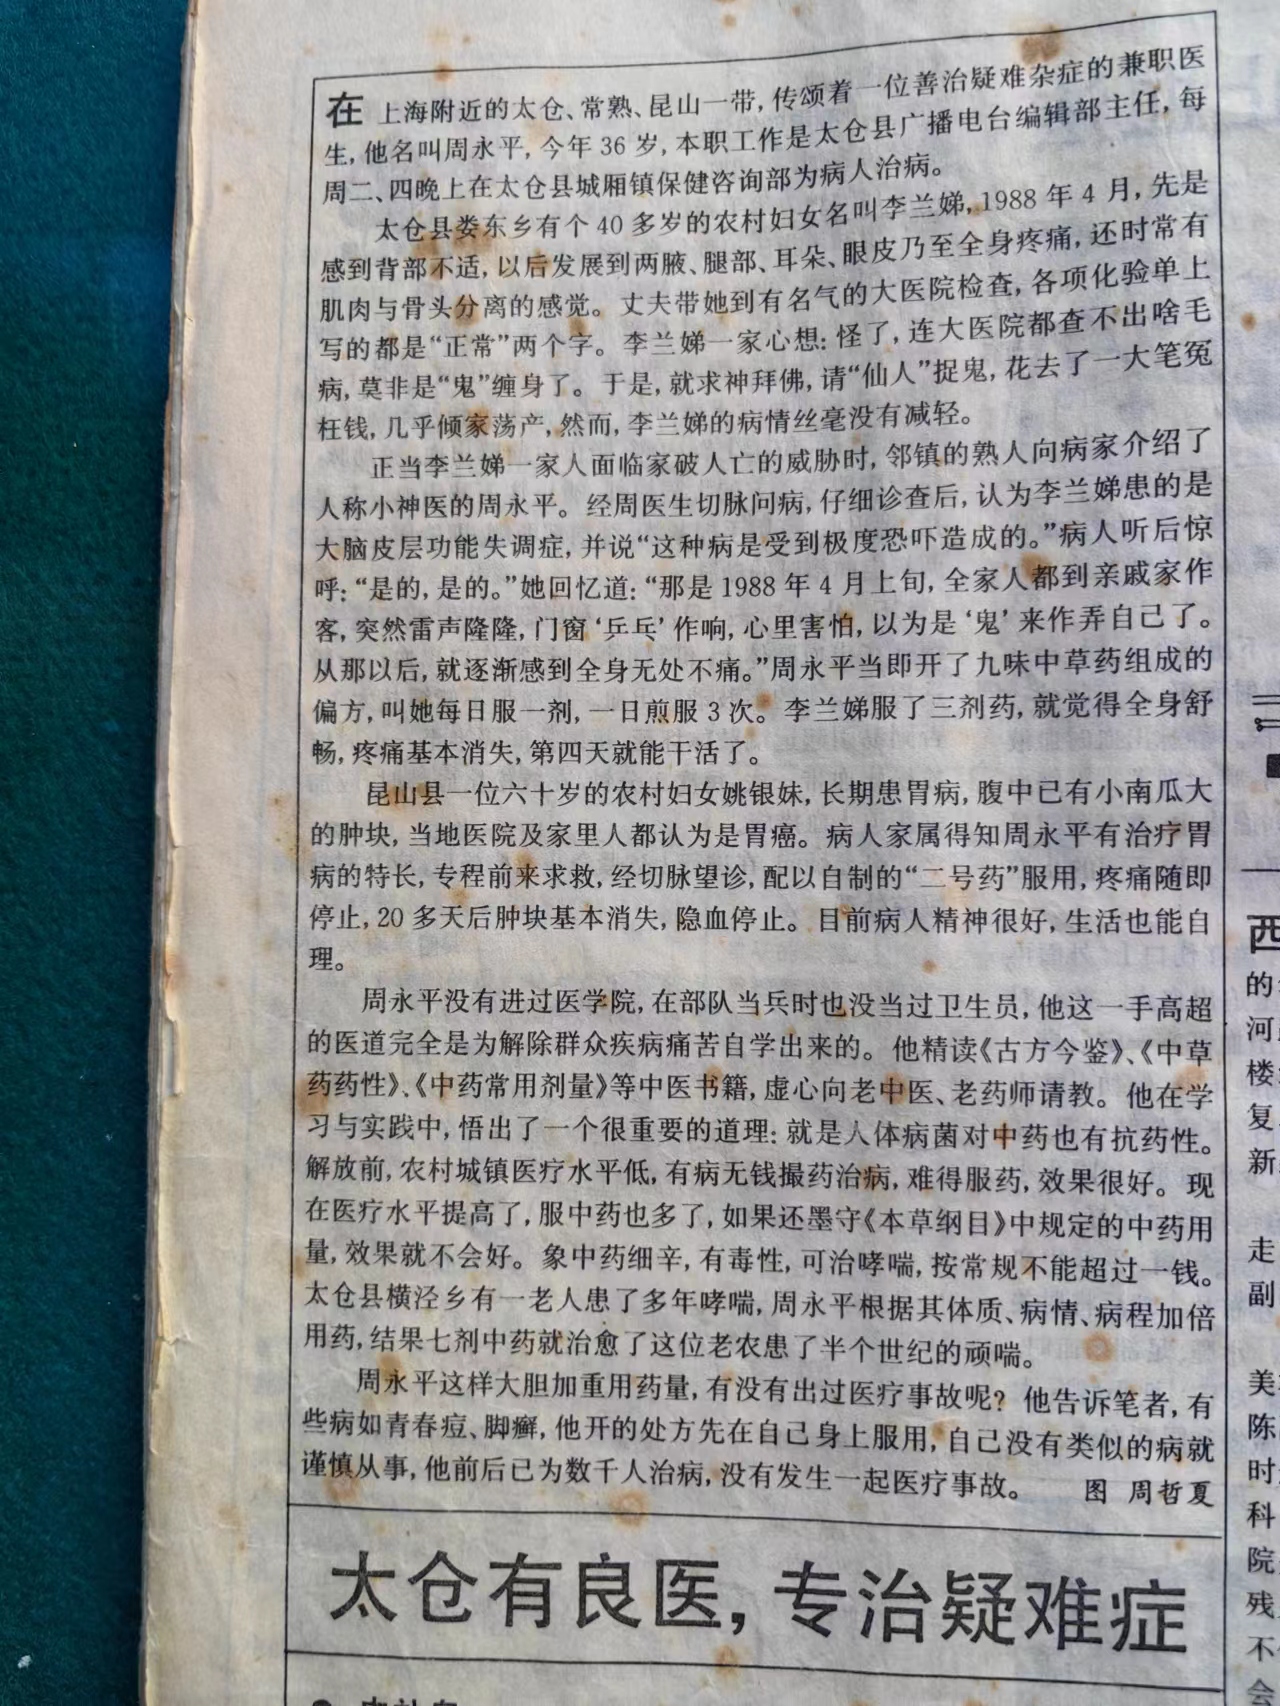 在上海附近的太仓、常熟、昆山一带，传颂着一位善治疑难杂症的兼职医
生，他名叫周永平，今年36岁，本职工作是太仓县广播电台编辑部主任，每
周二、四晚上在太仓县城厢镇保健咨询部为病人治病。
太仓县娄东乡有个40多岁的农村妇女名叫李兰娣，1988年4月，先是
感到背部不适，以后发展到两腋、腿部、耳朵、眼皮乃至全身疼痛，还时常有
肌肉与骨头分离的感觉。丈夫带她到有名气的大医院检查，各项化验单上
写的都是“正常”两个字。李兰娣一家心想：怪了，连大医院都查不出啥毛
病，莫非是“鬼”缠身了。于是，就求神拜佛，请“仙人”捉鬼，花去了一大笔冤
枉钱，几乎倾家荡产，然而，李兰娣的病情丝毫没有减轻。
正当李兰娣一家人面临家破人亡的威胁时，邻镇的熟人向病家介绍了
人称小神医的周永平。经周医生切脉问病，仔细诊查后，认为李兰娣患的是
大脑皮层功能失调症，并说“这种病是受到极度恐吓造成的。”病人听后惊
呼：“是的，是的。”她回忆道：“那是1988年4月上旬，全家人都到亲戚家作
客，突然雷声隆隆，门窗‘乒乓’作响，心里害怕，以为是‘鬼’来作弄自己了。
从那以后，就逐渐感到全身无处不痛。”周永平当即开了九味中草药组成的
偏方，叫她每日服一剂，一日煎服3次。李兰娣服了三剂药，就觉得全身舒
畅，疼痛基本消失，第四天就能干活了。
昆山县一位六十岁的农村妇女姚银妹，长期患胃病，腹中已有小南瓜大
的肿块，当地医院及家里人都认为是胃癌。病人家属得知周永平有治疗胃
病的特长，专程前来求救，经切脉望诊，配以自制的“二号药”服用，疼痛随即
停止，20多天后肿块基本消失，隐血停止。目前病人精神很好，生活也能自
理。
周永平没有进过医学院，在部队当兵时也没当过卫生员，他这一手高超
的医道完全是为解除群众疾病痛苦自学出来的。他精读《古方今鉴》、《中草
药药性》、《中药常用剂量》等中医书籍，虚心向老中医、老药师请教。他在学
习与实践中，悟出了一个很重要的道理：就是人体病菌对中药也有抗药性。
解放前，农村城镇医疗水平低，有病无钱撮药治病，难得服药，效果很好。现
在医疗水平提高了，服中药也多了，如果还墨守《本草纲目》中规定的中药用
量，效果就不会好。象中药细辛，有毒性，可治哮喘，按常规不能超过一钱。
太仓县横泾乡有一老人患了多年哮喘，周永平根据其体质、病情、病程加倍
用药，结果七剂中药就治愈了这位老农患了半个世纪的顽喘。
周永平这样大胆加重用药量，有没有出过医疗事故呢？他告诉笔者，有
些病如青春痘、脚癣，他开的处方先在自己身上服用，自己没有类似的病就
谨慎从事，他前后已为数千人治病，没有发生一起医疗事故。 图 周哲夏
太仓有良医，专治疑难症
西
的
河
楼
复
新
走
副
美
陈
时
科
院
残
不
会